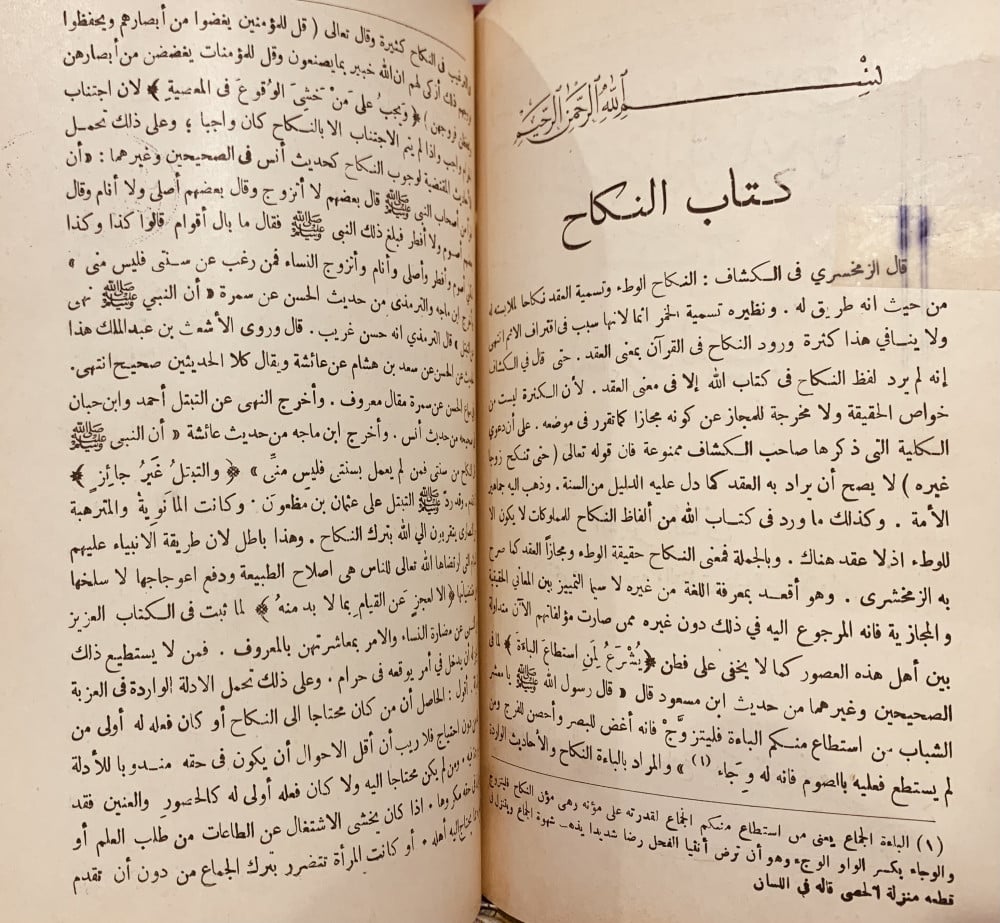 بسم الله الرحمن الرحيم
كتاب النكاح
قال الزمخسري فى الكشاف : النكاح الوطء وتسمية العقد نكاحا لملابسته له
من حيث انه طريق له . ونظيره تسمية الخمر اثما لانها سبب فى اقتراف الاثم انتهى
ولا ينافي هذا كثرة ورود النكاح فى القرآن بمعنى العقد . حتى قال في الكشاف
إنه لم يرد لفظ النكاح فى كتاب الله إلا فى معنى العقد . لأن الكثرة ليست من
خواص الحقيقة ولا مخرجة للمجاز عن كونه مجازا كما تقرر فى موضعه . على أن دعوي
الكلية التى ذكرها صاحب الكشاف ممنوعة فان قوله تعالى ( حتى تنكح زوجا
غيره ) لا يصح أن يراد به العقد كما دل عليه الدليل من السنة . وذهب اليه جماهير
الأمة . وكذلك ما ورد فى كتاب الله من ألفاظ النكاح للمملوكات لا يكون الا
للوطء اذ لا عقد هناك . وبالجملة فمعنى النكاح حقيقة الوطء ومجازاً العقد كما صرح
به الزمخشرى . وهو أقعد بمعرفة اللغة من غيره لا سيما التمييز بين المعاني الحقيقية
والمجازية فانه المرجوع اليه في ذلك دون غيره ممن صارت مؤلفاتهم الآن متداولة
بين أهل هذه العصور كما لا يخفى على فطن ﴿ يُشْرَعُ لِمَنِ استطاعَ الباءةَ ﴾ لما فى
الصحيحين وغيرهما من حديث ابن مسعود قال « قال رسول الله ﷺ يا معشر
الشباب من استطاع منكم الباءة فليتزوَّجْ فانه أغض للبصر وأحصن للفرج ومن
لم يستطع فعليه بالصوم فانه له وِجَاء (١) » والمراد بالباءة النكاح والأحاديث الواردة
(١) الباءة الجماع يعنى من استطاع منكم الجماع لقدرته على مؤنه وهى مؤن النكاح فليتزوج
والوجاء بكسر الواو الوجء وهو أن ترض أنثيا الفحل رضا شديدا يذهب شهوة الجماع ويتنزل فى
قطعه منزلة الخصى قاله في اللسان
الترغيب فى النكاح كثيرة وقال تعالى ( قل للمؤمنين يغضوا من أبصارهم ويحفظوا
فروجهم ذلك أزكى لهم ان الله خبير بما يصنعون وقل للمؤمنات يغضضن من أبصارهن
ويحفظن فروجهن ) ﴿ وَيجبُ علَى مَنْ خَشِيَ الوُقوعَ فى المعصيةِ ﴾ لان اجتناب
الحرام واجب واذا لم يتم الاجتناب الا بالنكاح كان واجبا ، وعلى ذلك تحمل
الأحاديث المقتضية لوجوب النكاح كحديث أنس فى الصحيحين وغيرهما : « أن
من أصحاب النبى ﷺ قال بعضهم لا أتزوج وقال بعضهم أصلى ولا أنام وقال
بعضهم أصوم ولا أفطر فبلغ ذلك النبى ﷺ فقال ما بال أقوام قالوا كذا وكذا
لكنى أصوم وأفطر وأصلى وأنام وأتزوج النساء فمن رغب عن سنتى فليس منى »
وأخرج ابن ماجه والترمذى من حديث الحسن عن سمرة « أن النبي ﷺ نهى
عن التبتل » قال الترمذي انه حسن غريب . قال وروى الأشعث بن عبد الملك هذا
الحديث عن الحسن عن سعد بن هشام عن عائشة ويقال كلا الحديثين صحيح انتهى.
سماع الحسن عن سمرة مقال معروف . وأخرج النهى عن التبتل أحمد وابن حبان
صحيحه من حديث أنس . وأخرج ابن ماجه من حديث عائشة « أن النبى ﷺ
النكاح من سنتى فمن لم يعمل بسنتى فليس منِّى » ﴿ والتبتلُ غَيرُ جائِزٍ ﴾
وقد ردّ ﷺ التبتل على عثمان بن مظعون . وكانت المانويةْ والمترهبة
النصارى يتقربون الي الله بترك النكاح . وهذا باطل لان طريقة الانبياء عليهم
التى ارتضاها الله تعالى للناس هى اصلاح الطبيعة ودفع اعوجاجها لا سلخها
﴿ الا لعجزٍ عَنِ القيامِ بما لا بد منهُ ﴾ لما ثبت فى الكتاب العزيز
عن مضارة النساء والامر بمعاشرتهن بالمعروف . فمن لا يستطيع ذلك
أن يدخل في أمر يوقعه فى حرام . وعلى ذلك تحمل الادلة الواردة فى العزبة
أقول : الحاصل أن من كان محتاجا الى النكاح أو كان فعله له أولى من
دون احتياج فلا ريب أن أقل الاحوال أن يكون فى حقه مندوبا للأدلة
ومن لم يكن محتاجا اليه ولا كان فعله أولى له كالحصور والعنين فقد
فى حقه مكروها . اذا كان يخشى الاشتغال عن الطاعات من طلب العلم أو
يحتاج اليه أهله . أو كانت المرأة تتضرر بترك الجماع من دون أن تقدم